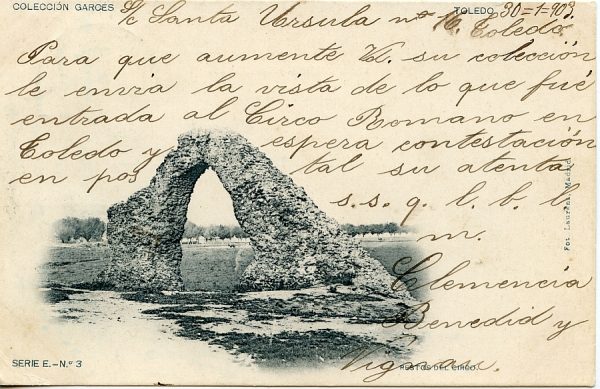 COLECCIÓN GARCÉS
TOLEDO 30-1-903.
S/c Santa Ursula nº Toledo
Para que aumente V. su colección
le envia la vista de lo que fué
entrada al Circo Romano en
Toledo y espera contestación
en pos tal su atenta
s. s. q. l. b. l.
m.
Clemencia
Benedid y
Fot. Laurent. Madrid
SERIE E.-N.º 3
RESTOS DEL CIRCO.